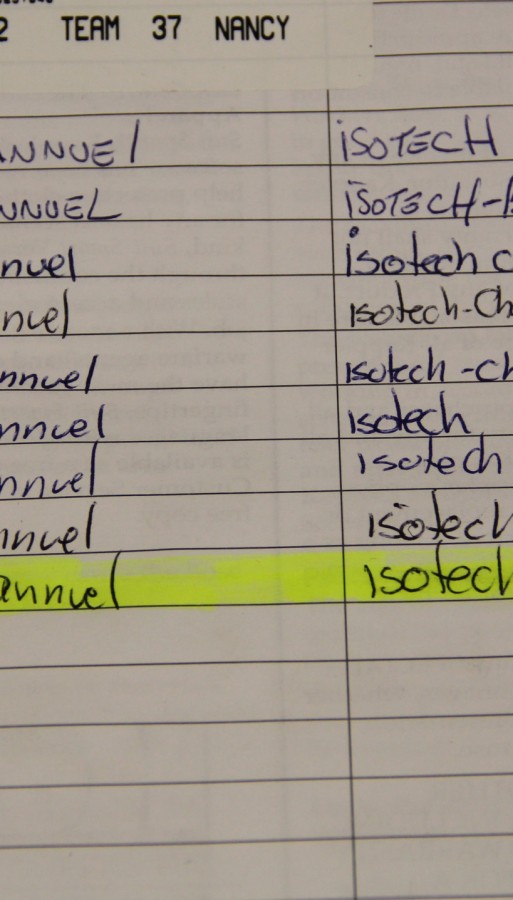 2 TEAM 37 NANCY
ANNUEl isoTECH
NNUEL isoTECH-
nuel isotech c
nuel isotech-Ch
nnuel isotech-ch
nnuel isotech
nnuel isotech
nnuel isotech
annuel isotech